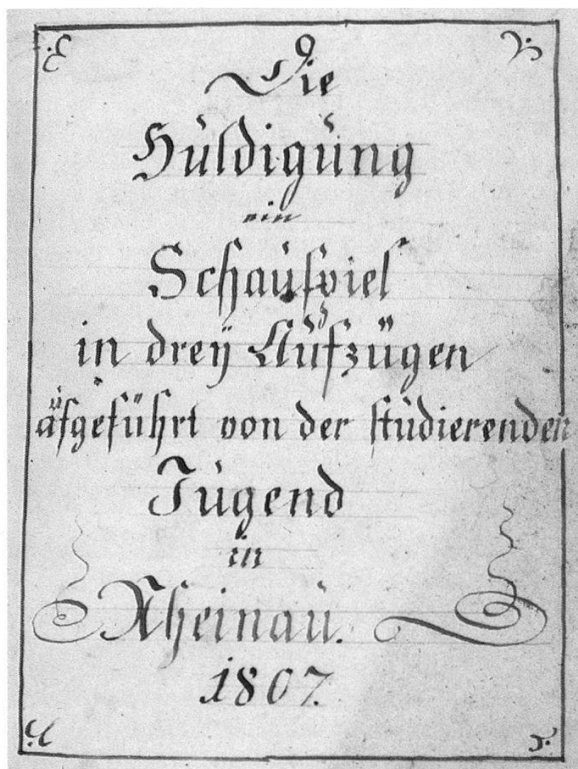 Die
Huldigung
ein
Schauspiel
in dreÿ Aufzügen
aufgeführt von der studierenden
Jugend
in
Rheinau.
1807.